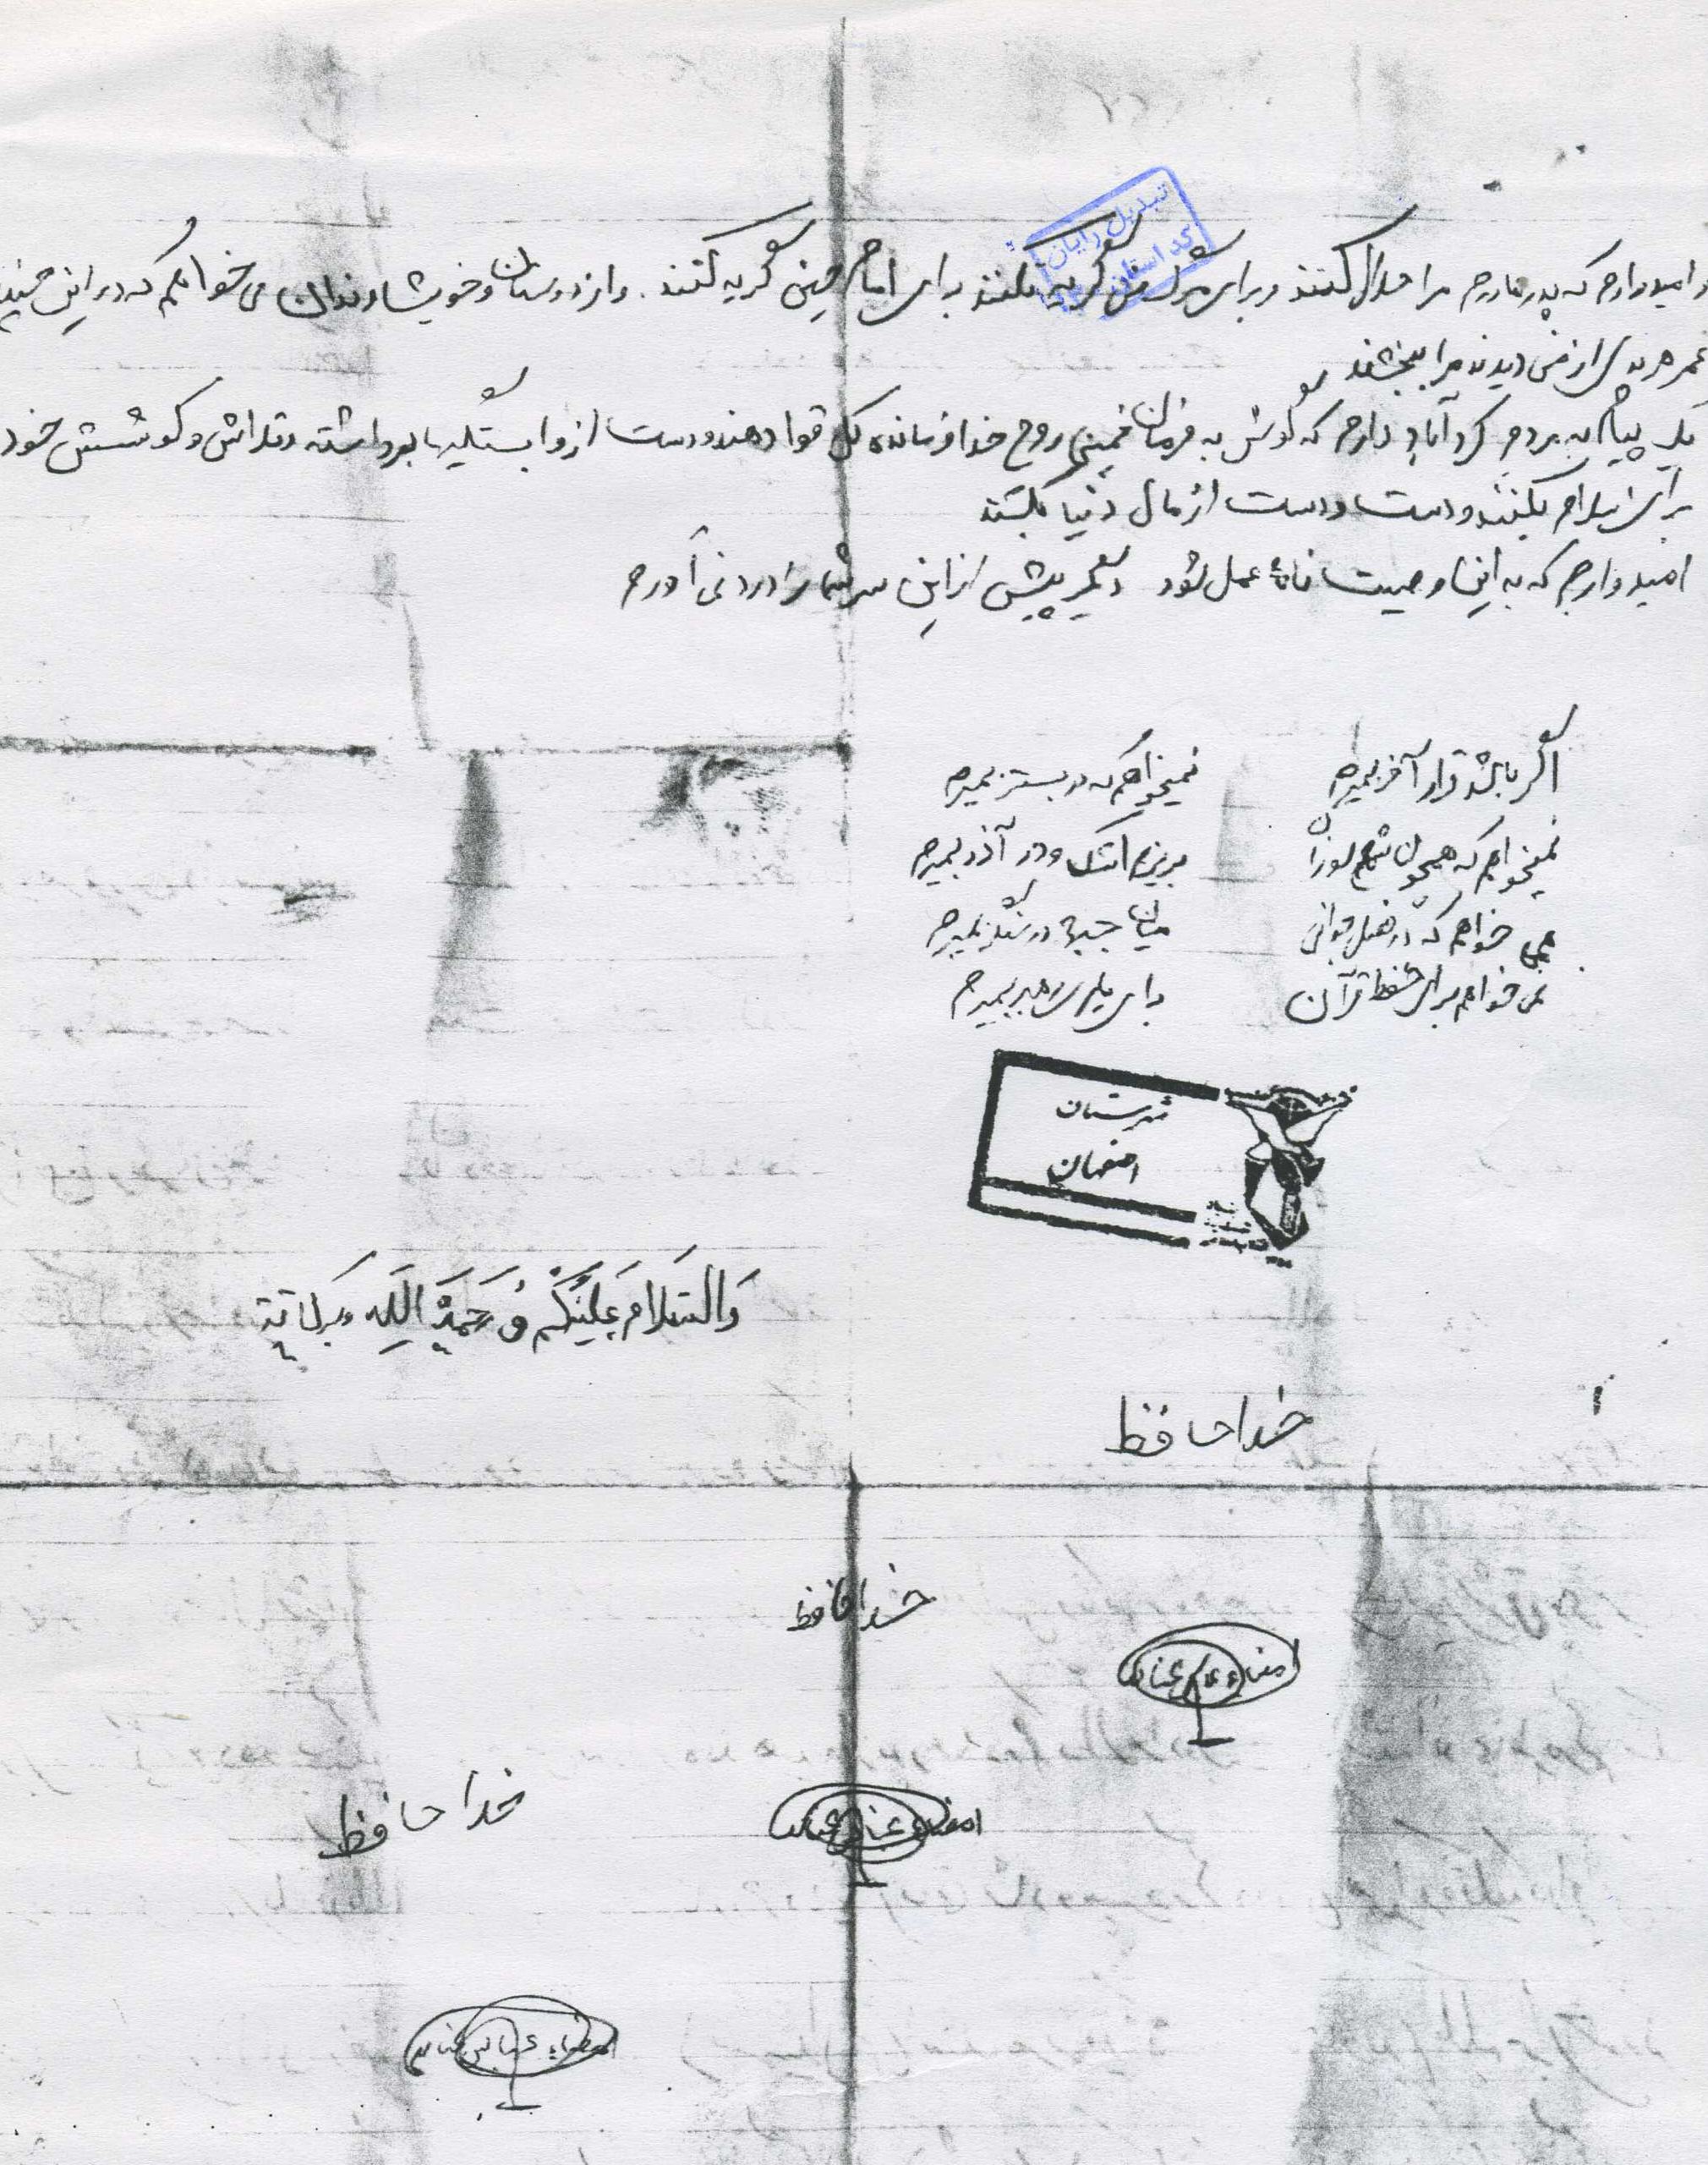 و امیدوارم که پدر مادرم مرا حلال کنند و برای مرگ من گریه نکنند برای امام حسین گریه کنند. و از دوستان و خویشاوندان می خواهم که در این چند
عمر هر بدی از من دیدند مرا ببخشند
یک پیام به مردم کردآباد دارم که گوش به فرمان خمینی روح خدا فرمانده کل قوا دهند و دست از وابستگیها برداشته و تلاش و کوشش خود
برای اسلام بکنند و دست و دست از مال دنیا بکشند
امیدوارم که به این وصیت نامۀ عمل شود دیگر بیش از این سر شما را درد نمی آورم
اگر باشد قرار آخر بمیرم نمیخواهم که در بستر بمیرم
نمیخواهم که همچون شمع سوزان بریزم اشک و در آذر بمیرم
همی خواهم که در فصل جوانی میان جبهه در سنگر بمیرم
می خواهم برای حفظ قرآن برای یاری رهبر بمیرم
شهرستان
اصفهان
وَالسَّلامُ عَلَیْکُمْ وَ رَحمَةُ اللهِ وَ برکاتة
خداحافظ
خداحافظ
امضاء عباس
خداحافظ
امضاء عباس
امضاء عباس
تبدیل رایان